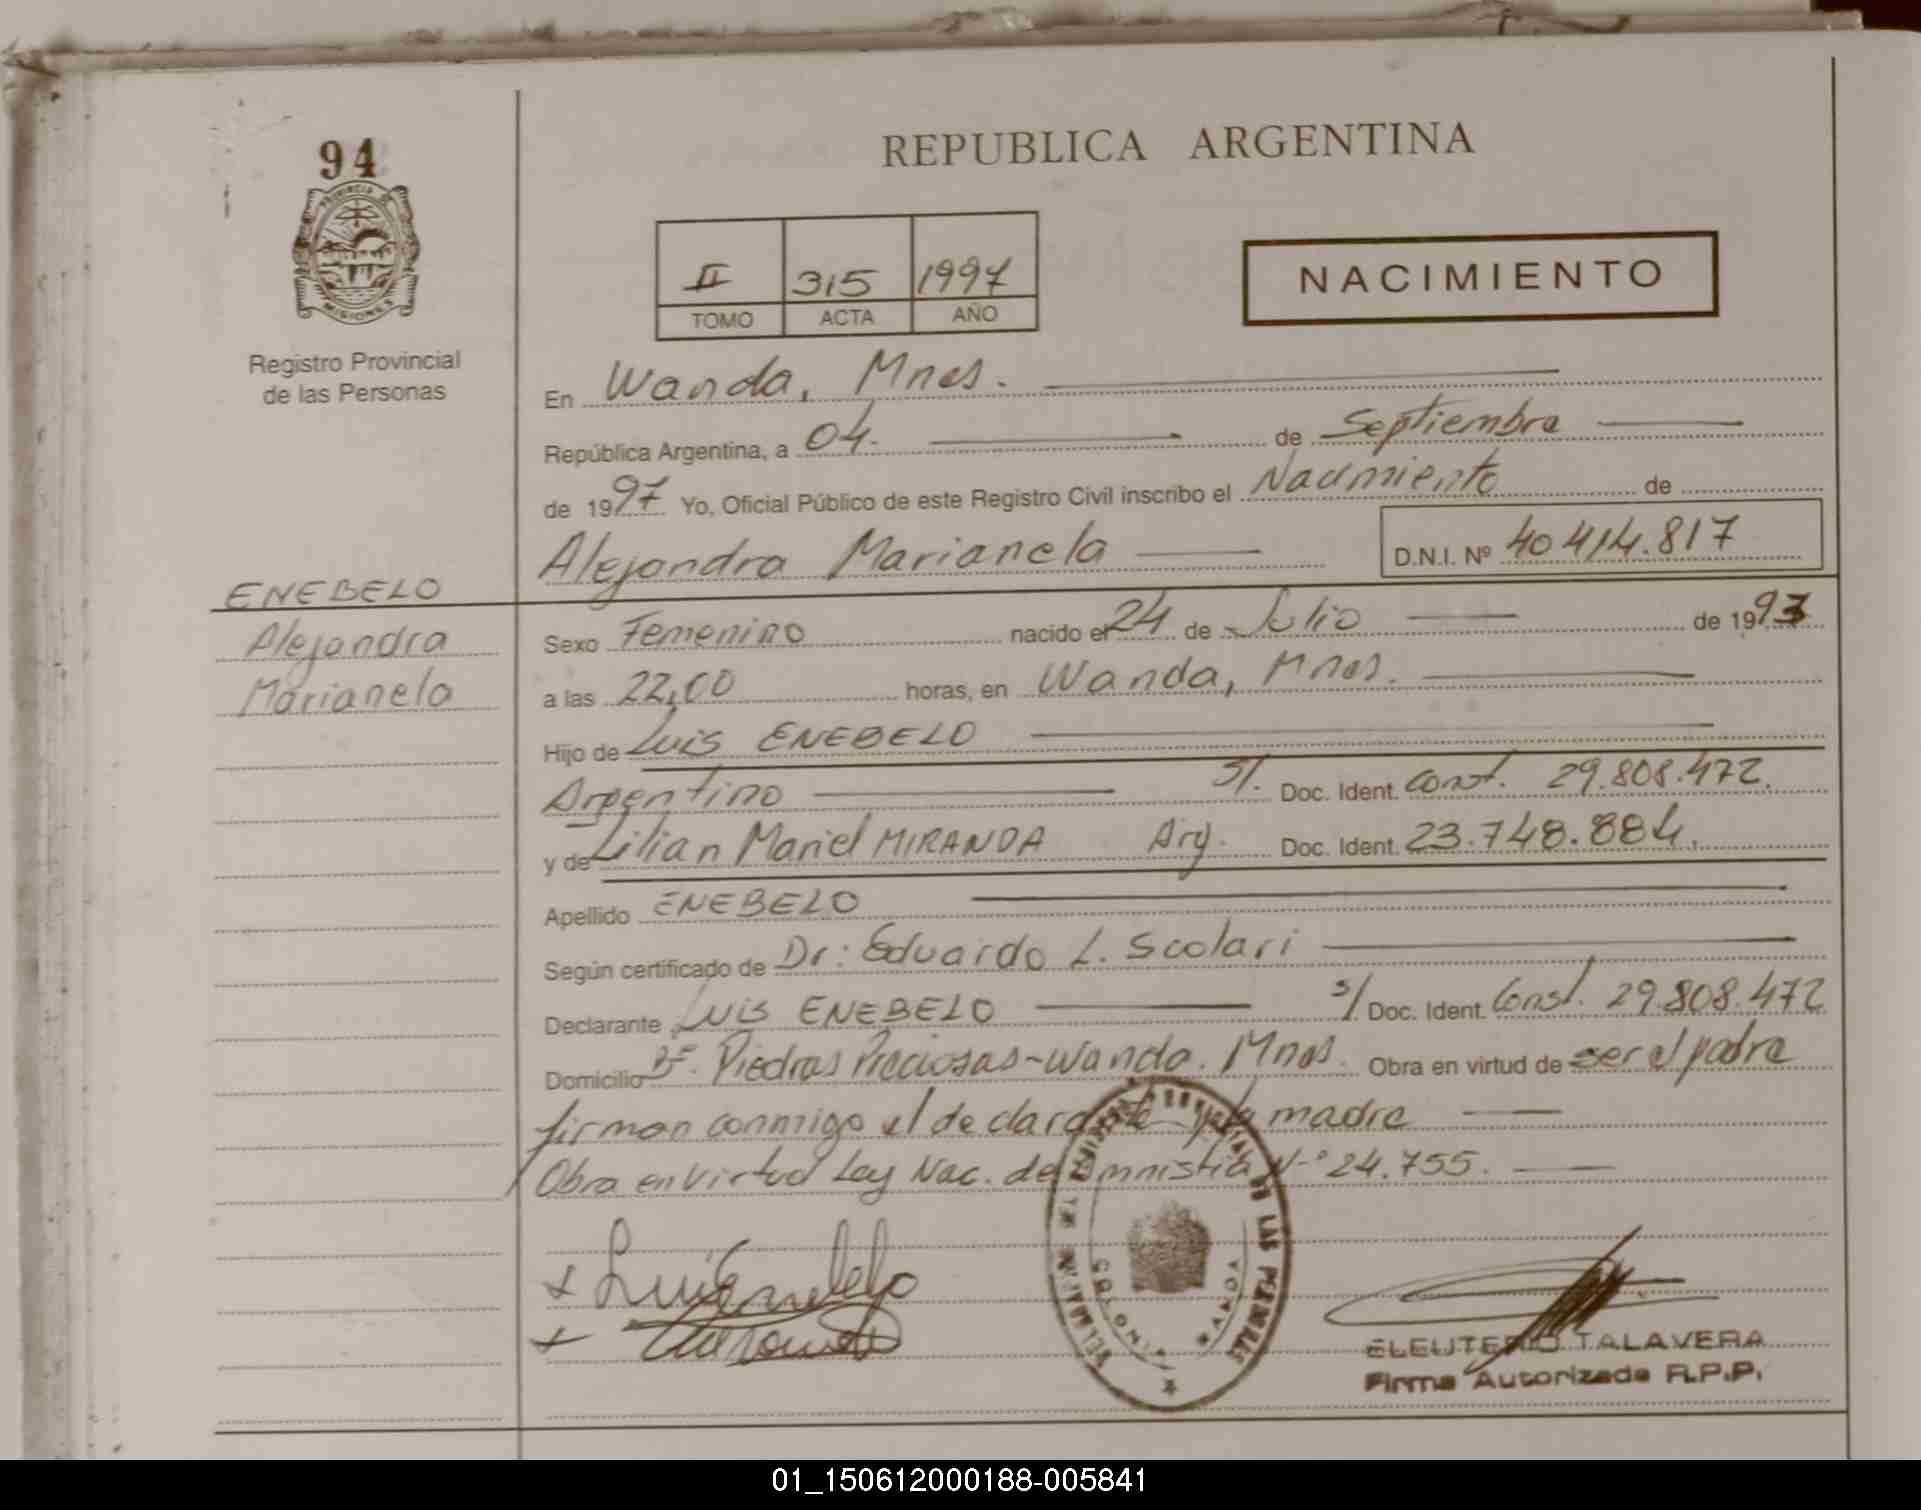 94
PROVINCIA DE
MISIONES
Registro Provincial
de las Personas
REPUBLICA ARGENTINA
II 315 1997
TOMO ACTA AÑO
NACIMIENTO
En Wanda, Mnes.
República Argentina, a 04. de Septiembre
de 1997 Yo, Oficial Público de este Registro Civil inscribo el Nacimiento de
Alejandra Marianela D.N.I. Nº 40414.817
ENEBELO
Alejandra
Marianela
Sexo Femenino nacido el 24 de Julio de 1997
a las 22,00 horas, en Wanda, Mnes.
Hijo de Luis ENEBELO
Argentino S/. Doc. Ident. Const. 29.808.472.
y de Lilian Mariel MIRANDA Arg. Doc. Ident. 23.748.884.
Apellido ENEBELO
Según certificado de Dr: Eduardo L. Scolari
Declarante Luis ENEBELO s/ Doc. Ident. Const. 29.808.472
Domicilio Bº. Piedras Preciosas-Wanda. Mnes. Obra en virtud de ser el padre
firman conmigo el declarante y la madre
Obra en virtud Ley Nac. de Amnistia Nº 24.755.
+ Luis Enebelo
COLONIA WANDA
ELEUTERIO TALAVERA
Firma Autorizada R.P.P.
01_150612000188-005841